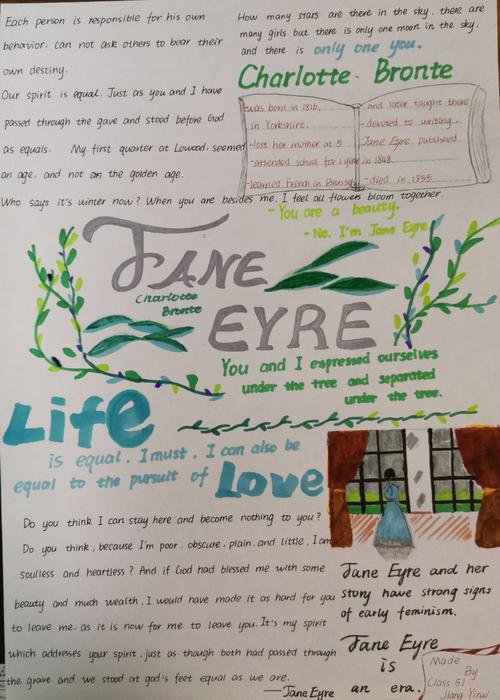 Each person is responsible for his own
behavior. can not ask others to bear their
own destiny.
Our spirit is equal. Just as you and I have
passed through the gave and stood before God
as equals. My first quarter at Lowood. seemed
an age. and not an the golden age.
How many stars are there in the sky. there are
many girls but there is only one moon in the sky.
and there is only one you.
Charlotte Bronte
was born in 1816.
in Yorkshire.
-lost her mother at 5
-attended school for 1 year
-learned French in Brussel
-and later taught there
-devosed to writing.
Jane Eyre published
in 1848.
-died in 1855
Who says it's winter now? When you are besides me, I feel all flowers bloom together.
-You are a beauty.
-No. I'm Jane Eyre
JANE
Charlotte
Bronte
EYRE
You and I expressed ourselves
under the tree and separated
under the tree.
Life
is equal. I must. I can also be
equal to the pursuit of Love
Do you think I can stay here and become nothing to you?
Do you think, because I'm poor. obscure. plain. and little, I am
soulless and heartless? And if God had blessed me with some
beauty and much wealth, I would have made it as hard for you
to leave me. as it is now for me to leave you. It's my spirit
which addresses your spirit. just as though both had passed through
the grave and we stood at god's feet equal as we are.
—Jane Eyre
Jane Eyre and her
story have strong signs
of early feminism.
Jane Eyre
is
an era.
Made
By
Class 51
Jiang Yirui